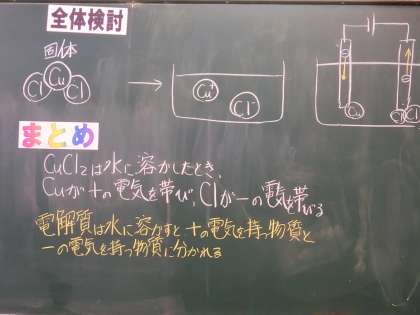 全体検討
固体
Cl Cu Cl
Cu⁺
Cl⁻
Cu
Cl Cl
まとめ
CuCl₂は水に溶かしたとき、
Cuが+の電気を帯び、Clが-の電気を帯びる
電解質は水に溶かすと+の電気を持つ物質と
-の電気を持つ物質に分かれる